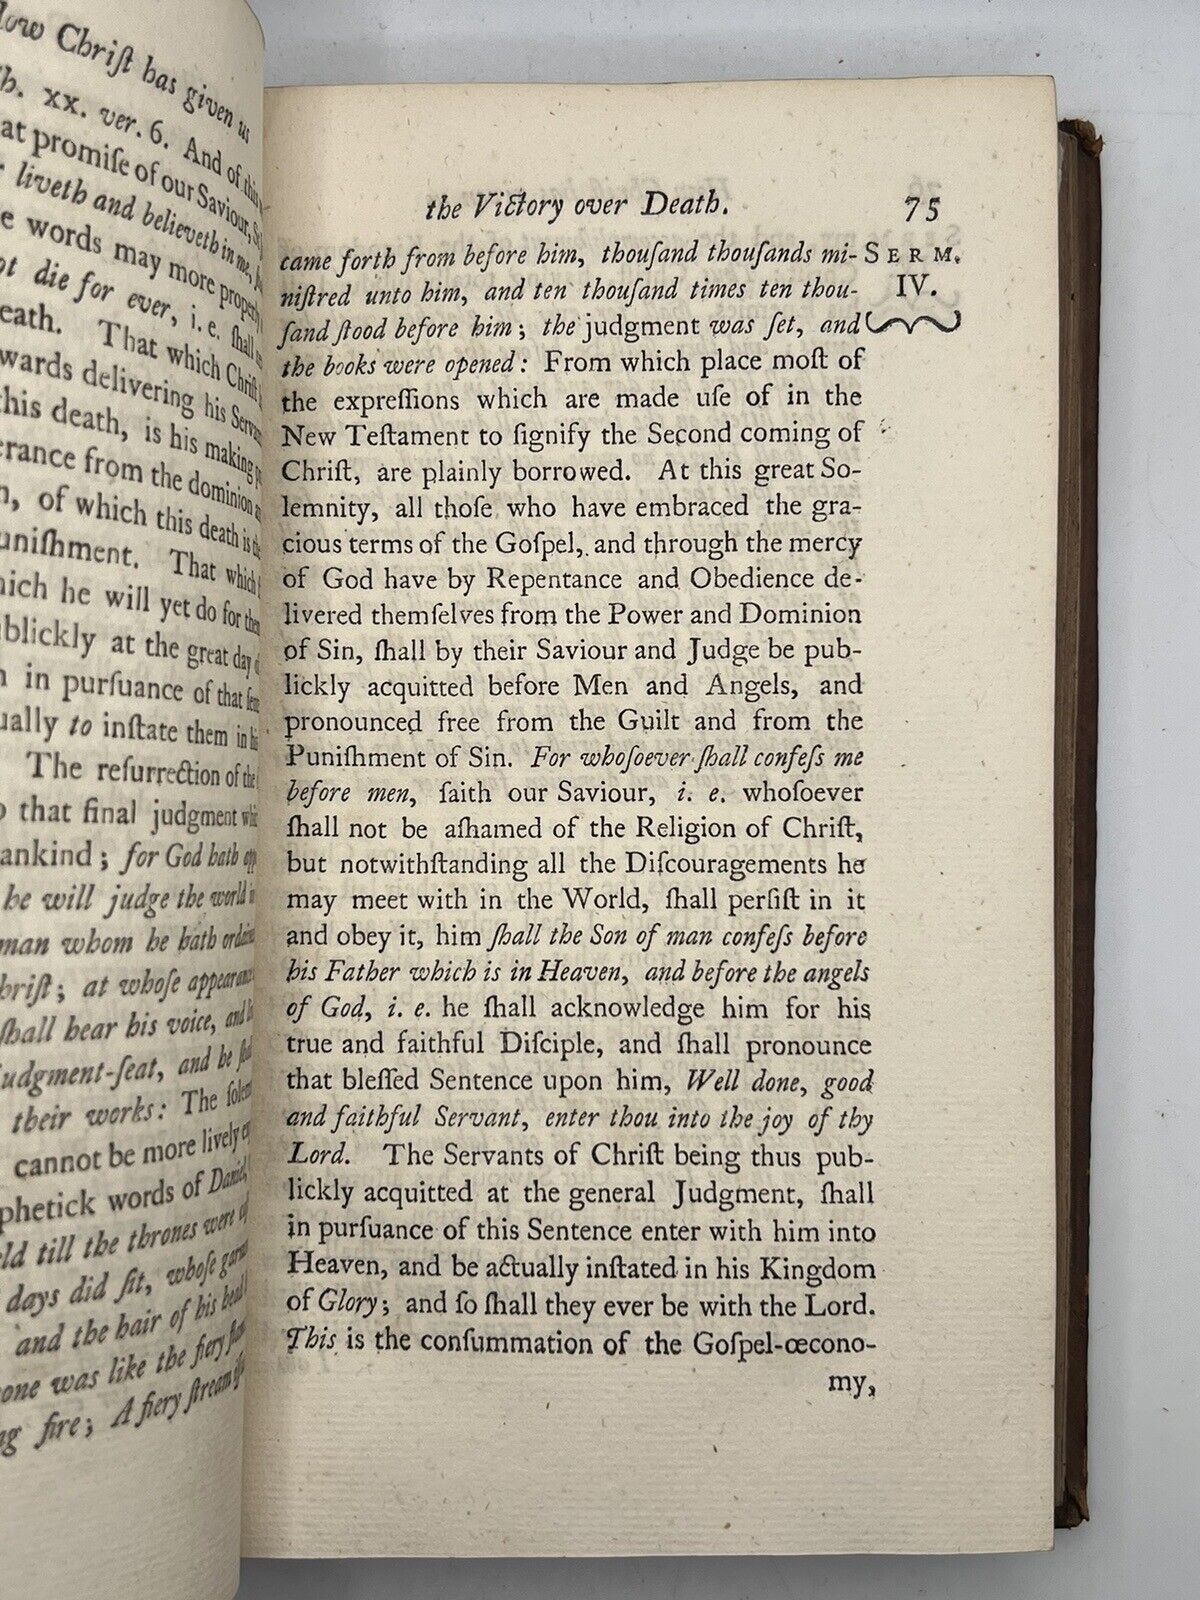 How Christ has given us
Ch. xx. ver. 6. And of this
at promiſe of our Saviour,
liveth and believeth in me,
e words may more properly
ot die for ever, i. e. ſhall
eath. That which Chriſt
wards delivering his Serva
this death, is his making
erance from the dominion
n, of which this death is the
uniſhment. That which
hich he will yet do for them
blickly at the great day
n in purſuance of that
ually to inſtate them in his
The reſurrection of the
o that final judgment
ankind; for God hath
he will judge the world
man whom he hath
hriſt; at whoſe appearance
ſhall hear his voice, and
udgment-ſeat, and be
their works: The
cannot be more lively
phetick words of Daniel,
ld till the thrones were
days did ſit, whoſe
and the hair of his head
one was like the fiery
ng fire; A fiery ſtream
the Victory over Death. 75
SERM.
IV.
came forth from before him, thouſand thouſands mi-
niſtred unto him, and ten thouſand times ten thou-
ſand ſtood before him; the judgment was ſet, and
the books were opened: From which place moſt of
the expreſſions which are made uſe of in the
New Teſtament to ſignify the Second coming of
Chriſt, are plainly borrowed. At this great So-
lemnity, all thoſe who have embraced the gra-
cious terms of the Goſpel, and through the mercy
of God have by Repentance and Obedience de-
livered themſelves from the Power and Dominion
of Sin, ſhall by their Saviour and Judge be pub-
lickly acquitted before Men and Angels, and
pronounced free from the Guilt and from the
Puniſhment of Sin. For whoſoever ſhall confeſs me
before men, ſaith our Saviour, i. e. whoſoever
ſhall not be aſhamed of the Religion of Chriſt,
but notwithſtanding all the Diſcouragements he
may meet with in the World, ſhall perſiſt in it
and obey it, him ſhall the Son of man confeſs before
his Father which is in Heaven, and before the angels
of God, i. e. he ſhall acknowledge him for his
true and faithful Diſciple, and ſhall pronounce
that bleſſed Sentence upon him, Well done, good
and faithful Servant, enter thou into the joy of thy
Lord. The Servants of Chriſt being thus pub-
lickly acquitted at the general Judgment, ſhall
in purſuance of this Sentence enter with him into
Heaven, and be actually inſtated in his Kingdom
of Glory; and ſo ſhall they ever be with the Lord.
This is the conſummation of the Goſpel-œcono-
my,